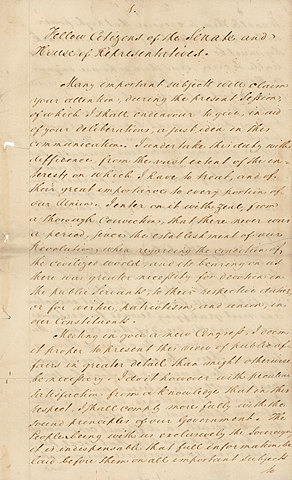 1.
Fellow Citizens of the Senate and
House of Representatives.
Many important subjects will claim
your attention, during the present Session,
of which I shall endeavour to give, in aid
of your deliberations, a just idea in this
communication. I undertake this duty with
diffidence, from the vast extent of the in-
terests on which I have to treat, and of
their great importance to every portion of
our Union. I enter on it with zeal, from
a thorough conviction, that there never was
a period, since the establishment of our
Revolution, when regarding the condition of
the civilized world, and its bearing on us,
there was greater necessity for devotion in
the public Servants, to their respective duties,
or for virtue, patriotism, and union, in
our Constituents.
Meeting in you a new Congress, I deem
it proper to present this view of public af-
fairs in greater detail than might otherwise
be necessary. I do it however with peculiar
satisfaction from a knowledge that in this
respect I shall comply more fully with the
sound principles of our Government. The
People being with us exclusively the Sovereign,
it is indispensable that full information be
laid before them on all important subjects
to